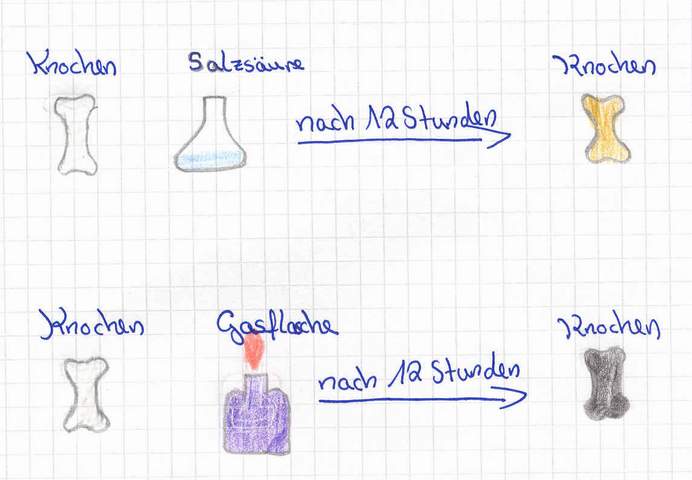 Knochen
Salzsäure
nach 12 Stunden
Knochen
Knochen
Gasflasche
nach 12 Stunden
Knochen